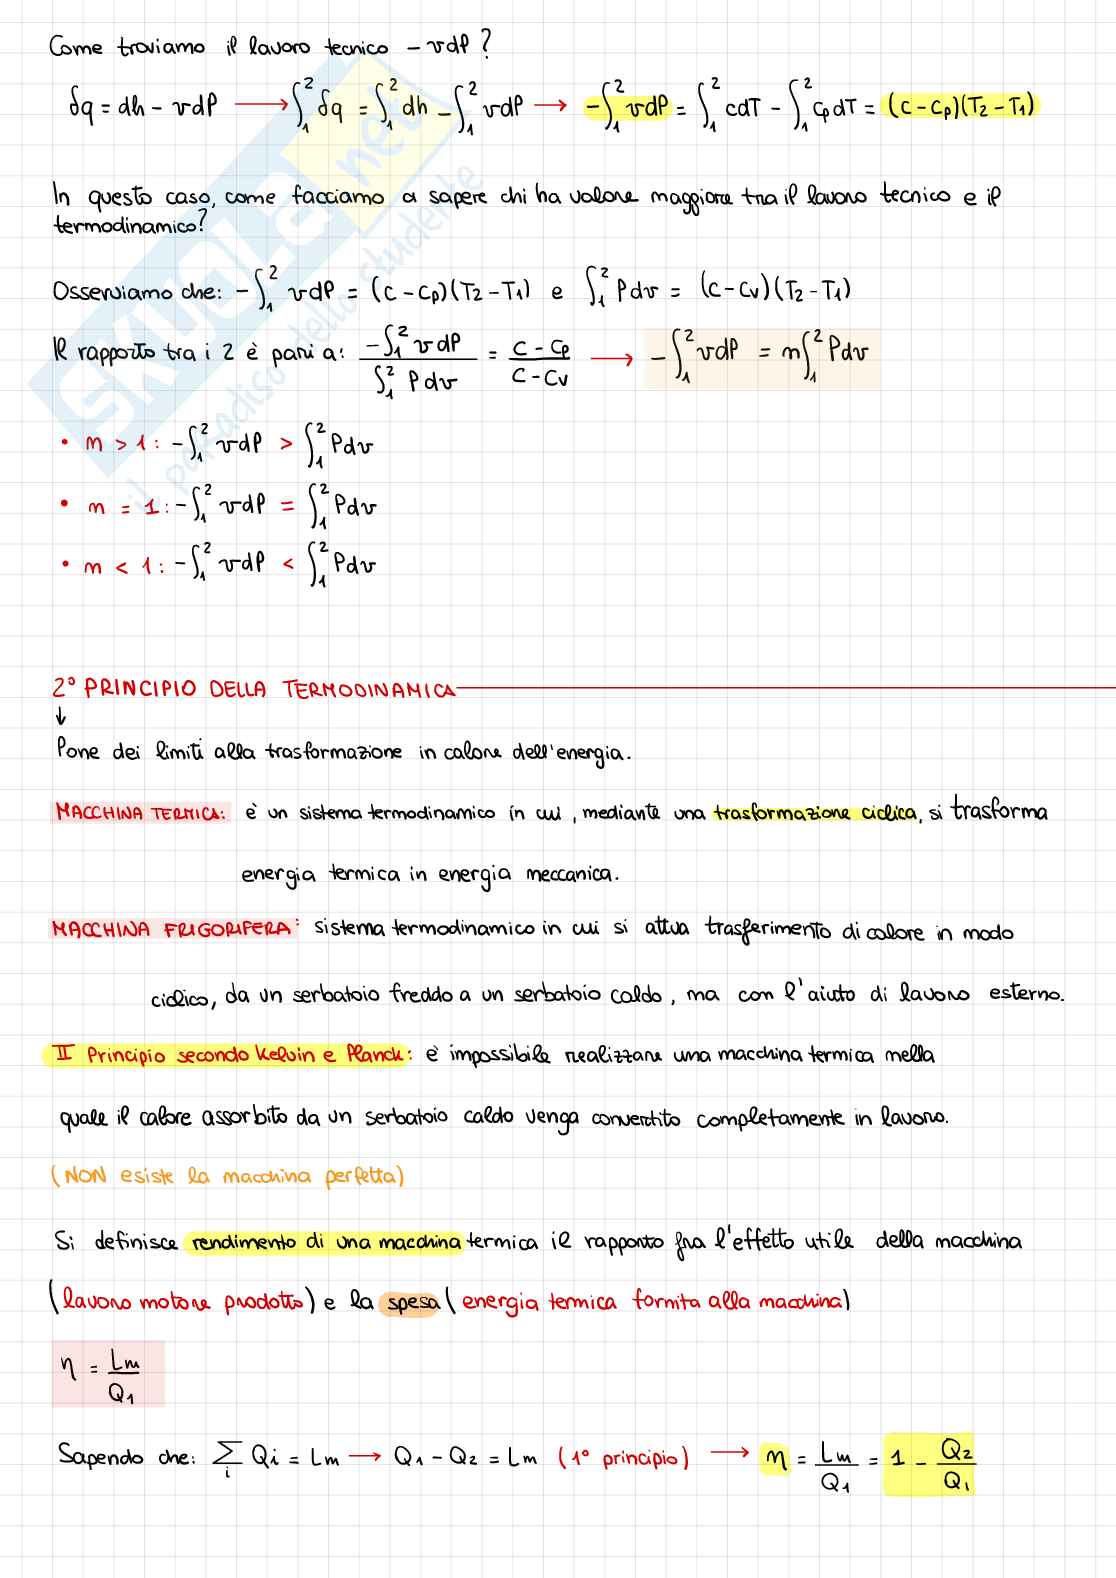 Come troviamo il lavoro tecnico - vdP?
δq = dh - vdP ⟶ ∫₁² δq = ∫₁² dh - ∫₁² vdP ⟶ -∫₁² vdP = ∫₁² cdT - ∫₁² cpdT = (c - cp)(T2 - T1)
In questo caso, come facciamo a sapere chi ha valore maggiore tra il lavoro tecnico e il
termodinamico?
Osserviamo che: -∫₁² vdP = (c - cp)(T2 - T1) e ∫₁² Pdv = (c - cv)(T2 - T1)
Il rapporto tra i 2 è pari a: -∫₁² vdP / ∫₁² Pdv = c - cp / c - cv ⟶ -∫₁² vdP = n∫₁² Pdv
• n > 1: -∫₁² vdP > ∫₁² Pdv
• n = 1: -∫₁² vdP = ∫₁² Pdv
• n < 1: -∫₁² vdP < ∫₁² Pdv
2° PRINCIPIO DELLA TERMODINAMICA
↓
Pone dei limiti alla trasformazione in calore dell'energia.
MACCHINA TERMICA: è un sistema termodinamico in cui, mediante una trasformazione ciclica, si trasforma
energia termica in energia meccanica.
MACCHINA FRIGORIFERA: sistema termodinamico in cui si attua trasferimento di calore in modo
ciclico, da un serbatoio freddo a un serbatoio caldo, ma con l'aiuto di lavoro esterno.
II Principio secondo Kelvin e Planck: è impossibile realizzare una macchina termica nella
quale il calore assorbito da un serbatoio caldo venga convertito completamente in lavoro.
(NON esiste la macchina perfetta)
Si definisce rendimento di una macchina termica il rapporto fra l'effetto utile della macchina
(lavoro motore prodotto) e la spesa (energia termica fornita alla macchina)
η = Lm / Q1
Sapendo che: ∑i Qi = Lm ⟶ Q1 - Q2 = Lm (1° principio) ⟶ η = Lm / Q1 = 1 - Q2 / Q1
SKUOLA.net
il paradiso dello studente